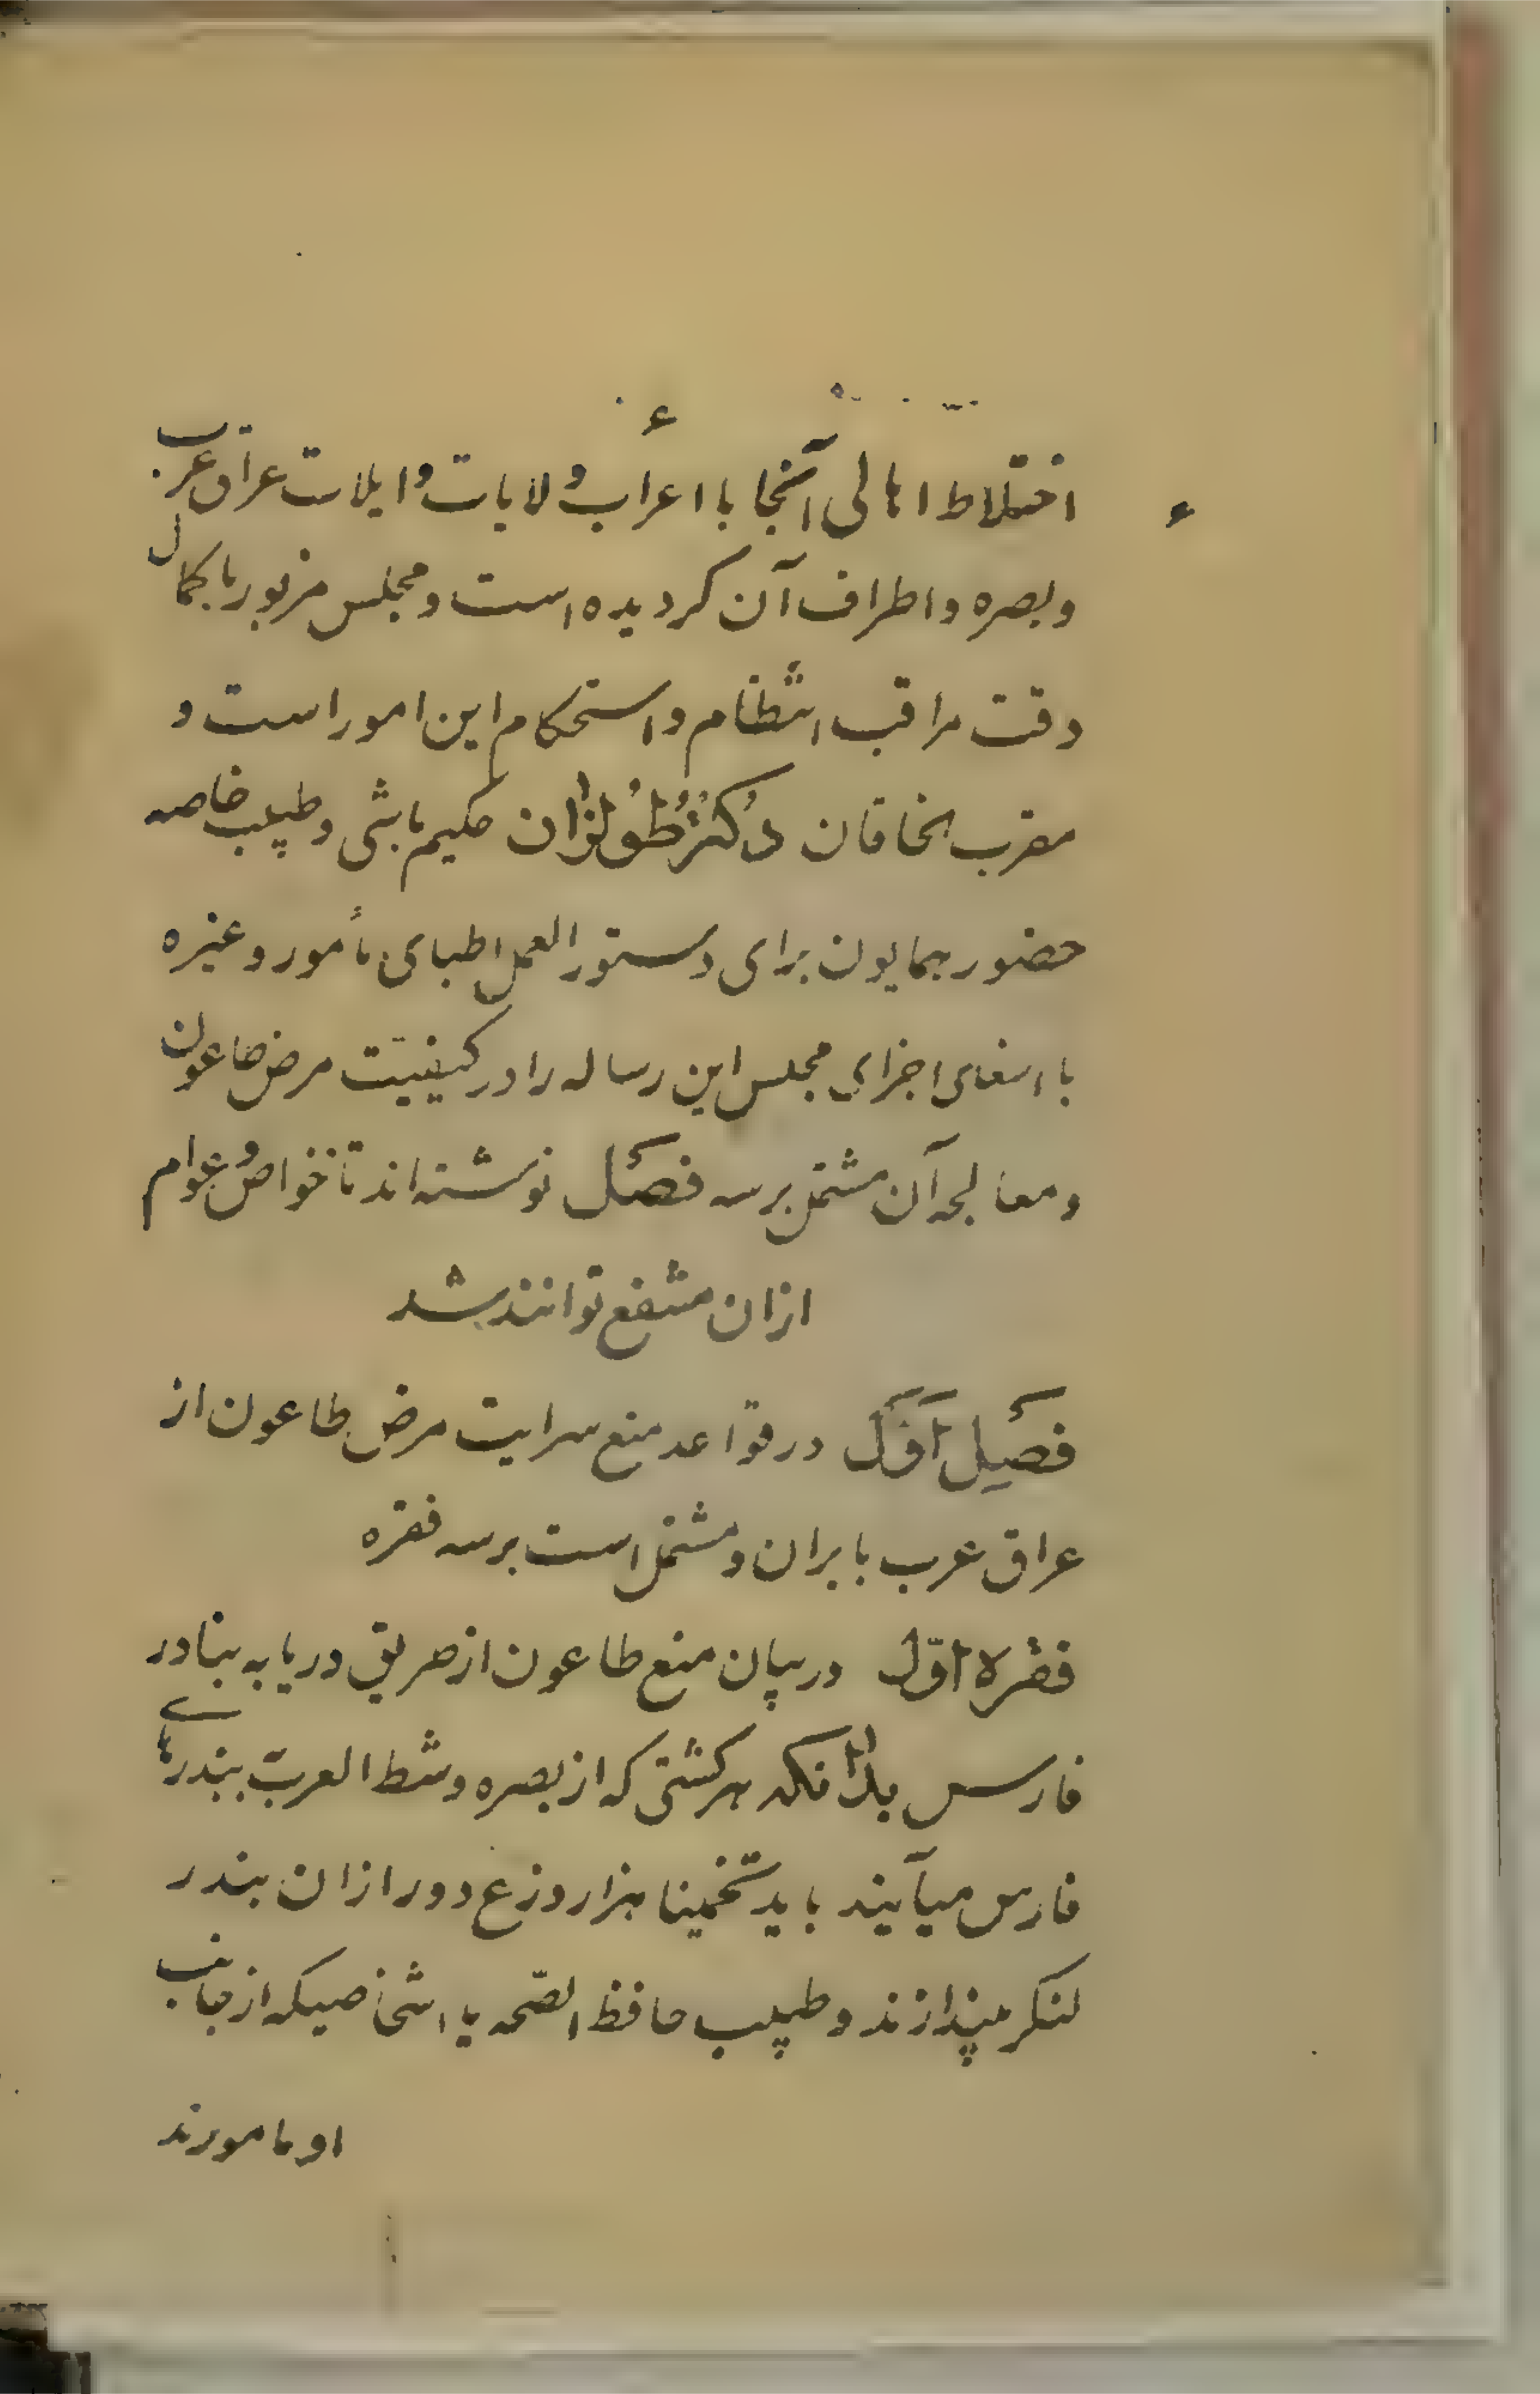 ۴
اختلاط اهالی آنجا با اعراب ولایات و ایلات عراق عرب
وبصره واطراف آن کردیده است ومجلس مزبور با کمال
دقت مراقب انتظام واستحکام این امور است و
مقرب الخاقان دکتر طولزان حکیم باشی وطبیب خاصه
حضور همایون برای دستور العمل اطبای مأمور وغیره
با امضای اجزای مجلس این رساله را در کیفیت مرض طاعون
ومعالجه آن مشتمل بر سه فصل نوشته اند تا خواص وعوام
ازان منتفع توانند شد
فصل اول در قواعد منع سرایت مرض طاعون از
عراق عرب بایران ومشتمل است بر سه فقره
فقره اوّل در بیان منع طاعون از طریق دریا به بنادر
فارس بدانکه هر کشتی که از بصره وشط العرب ببندرهای
فارس میآیند باید تخمینا هزار ذرع دور ازان بندر
لنکر میندازند وطبیب حافظ الصّحه یا اشخاصیکه از جانب
او مامورند